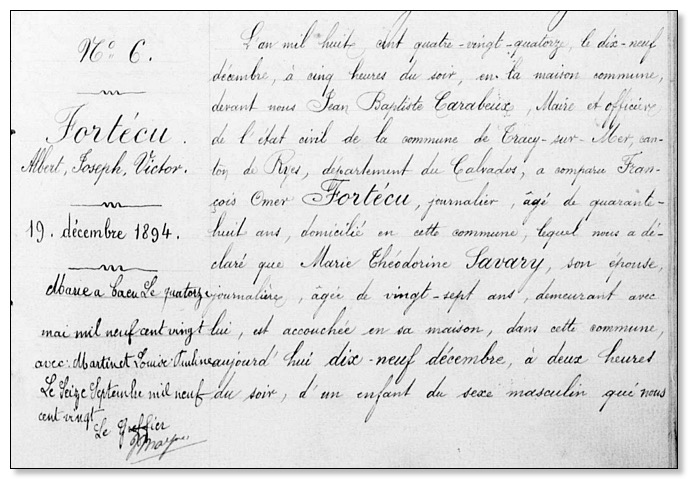 N° 6.
Fortécu.
Albert, Joseph, Victor.
19. décembre 1894.
Marié a Caen Le quatorze
mai mil neuf cent vingt
avec Martinet Louise Pauline
Le Seize Septembre mil neuf
cent vingt
Le Greffier
L'an mil huit cent quatre-vingt-quatorze, le dix-neuf
décembre, à cinq heures du soir, en la maison commune,
devant nous Jean Baptiste Carabeux, Maire et officier
de l'état civil de la commune de Tracy-sur-Mer, can-
ton de Ryes, département du Calvados, a comparu Fran-
çois Omer Fortécu, journalier, âgé de quarante-
huit ans, domicilié en cette commune, lequel nous a dé-
claré que Marie Théodorine Savary, son épouse,
journalière, âgée de vingt-sept ans, demeurant avec
lui, est accouchée en sa maison, dans cette commune,
aujourd'hui dix-neuf décembre, à deux heures
du soir, d'un enfant du sexe masculin qu'il nous